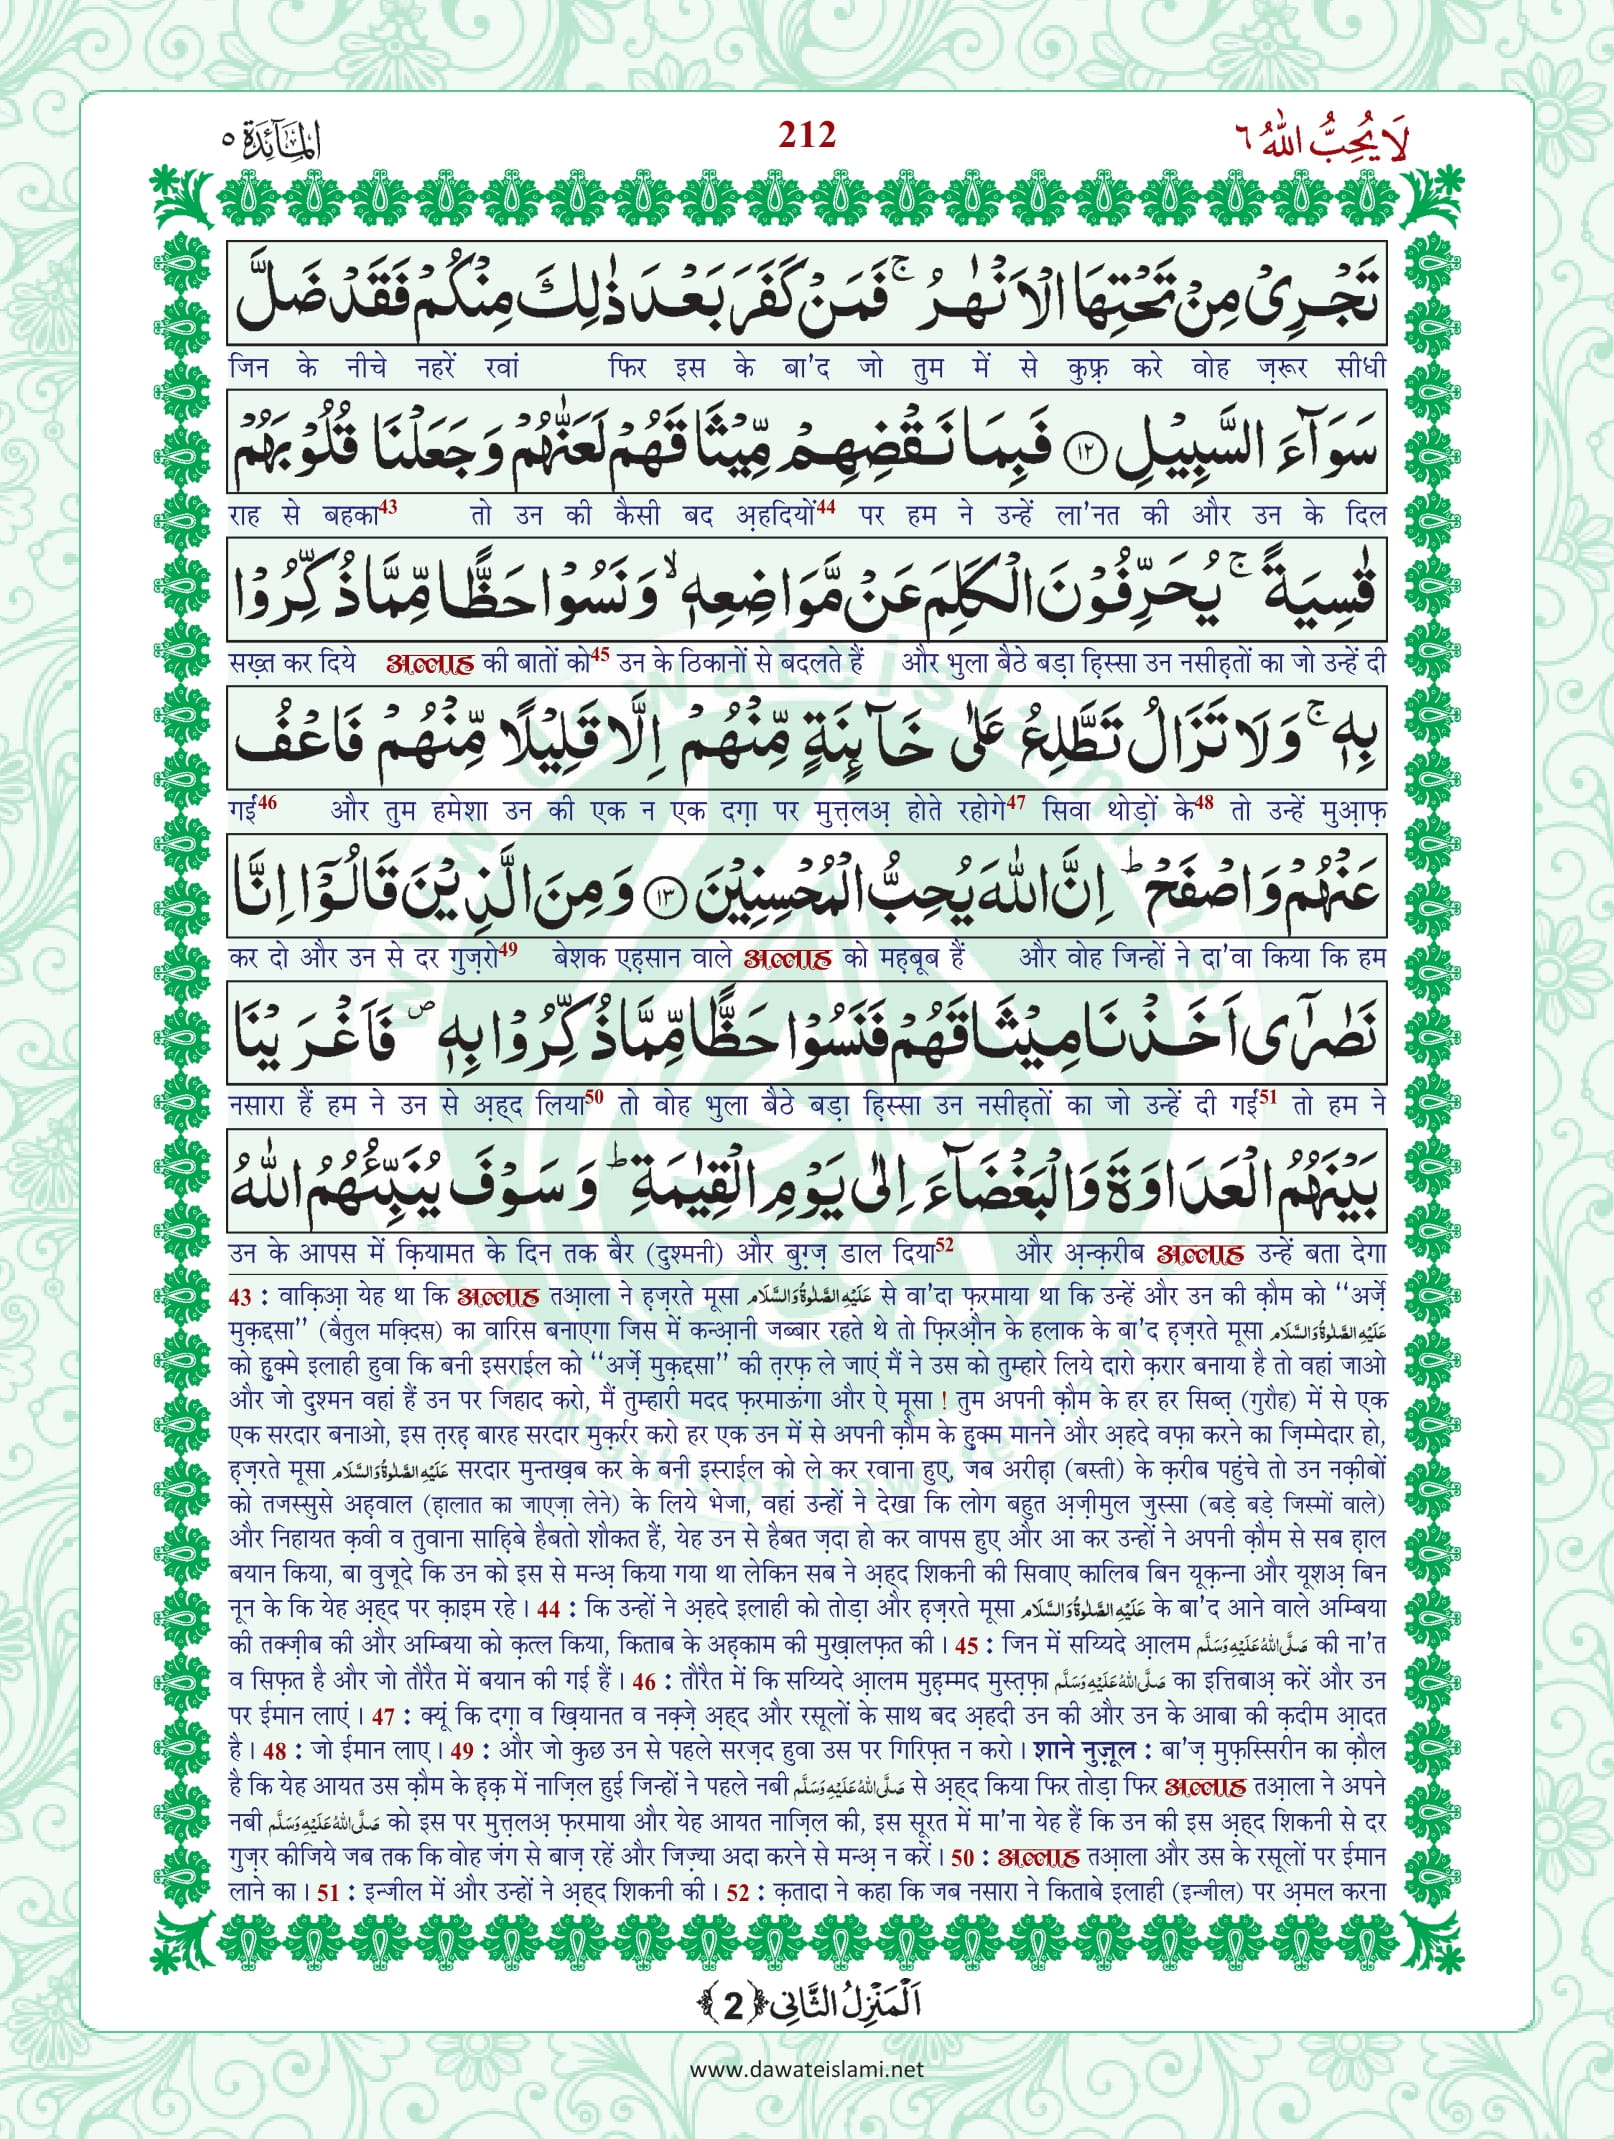 لَا يُحِبُّ اللّٰهُ ٦
212
اَلْمَآئِدَة ٥
تَجْرِیْ مِنْ تَحْتِهَا الْاَنْهٰرُ ۚ فَمَنْ كَفَرَ بَعْدَ ذٰلِكَ مِنْكُمْ فَقَدْ ضَلَّ
जिन के नीचे नहरें रवां फिर इस के बा'द जो तुम में से कुफ़्र करे वोह ज़रूर सीधी
سَوَآءَ السَّبِیْلِ ﴿۱۲﴾ فَبِمَا نَقْضِهِمْ مِّیْثَاقَهُمْ لَعَنّٰهُمْ وَ جَعَلْنَا قُلُوْبَهُمْ
राह से बहका43 तो उन की कैसी बद अ़हदियों44 पर हम ने उन्हें ला'नत की और उन के दिल
قٰسِیَةً ۚ یُحَرِّفُوْنَ الْكَلِمَ عَنْ مَّوَاضِعِهٖ ۙ وَ نَسُوْا حَظًّا مِّمَّا ذُكِّرُوْا
सख़्त कर दिये अल्लाह की बातों को45 उन के ठिकानों से बदलते हैं और भुला बैठे बड़ा हि़स्सा उन नसीह़तों का जो उन्हें दी
بِهٖ ۚ وَ لَا تَزَالُ تَطَّلِعُ عَلٰی خَآئِنَةٍ مِّنْهُمْ اِلَّا قَلِیْلًا مِّنْهُمْ فَاعْفُ
गईं46 और तुम हमेशा उन की एक न एक दग़ा पर मुत्त़लअ़ होते रहोगे47 सिवा थोड़ों के48 तो उन्हें मुआ़फ़
عَنْهُمْ وَ اصْفَحْ ؕ اِنَّ اللّٰهَ یُحِبُّ الْمُحْسِنِیْنَ ﴿۱۳﴾ وَ مِنَ الَّذِیْنَ قَالُوْۤا اِنَّا
कर दो और उन से दर गुज़रो49 बेशक एह़सान वाले अल्लाह को मह़बूब हैं और वोह जिन्हों ने दा'वा किया कि हम
نَصٰرٰۤی اَخَذْنَا مِیْثَاقَهُمْ فَنَسُوْا حَظًّا مِّمَّا ذُكِّرُوْا بِهٖ ۪ فَاَغْرَیْنَا
नसारा हैं हम ने उन से अ़ह्द लिया50 तो वोह भुला बैठे बड़ा हि़स्सा उन नसीह़तों का जो उन्हें दी गईं51 तो हम ने
بَیْنَهُمُ الْعَدَاوَةَ وَ الْبَغْضَآءَ اِلٰی یَوْمِ الْقِیٰمَةِ ؕ وَ سَوْفَ یُنَبِّئُهُمُ اللّٰهُ
उन के आपस में क़ियामत के दिन तक बैर (दुश्मनी) और बुग़्ज़ डाल दिया52 और अ़न्क़रीब अल्लाह उन्हें बता देगा
43 : वाक़िआ़ येह था कि अल्लाह तआ़ला ने ह़ज़रते मूसा عَلَيْهِ الصَّلٰوةُ وَالسَّلَام से वा'दा फ़रमाया था कि उन्हें और उन की क़ौम को ‘‘अर्ज़े
मुक़द्दसा’’ (बैतुल मक़्दिस) का वारिस बनाएगा जिस में कन्आ़नी जब्बार रहते थे तो फ़िरऔ़न के हलाक के बा'द ह़ज़रते मूसा عَلَيْهِ الصَّلٰوةُ وَالسَّلَام
को हुक्मे इलाही हुवा कि बनी इसराईल को ‘‘अर्ज़े मुक़द्दसा’’ की त़रफ़ ले जाएं मैं ने उस को तुम्हारे लिये दारो क़रार बनाया है तो वहां जाओ
और जो दुश्मन वहां हैं उन पर जिहाद करो, मैं तुम्हारी मदद फ़रमाऊंगा और ऐ मूसा ! तुम अपनी क़ौम के हर हर सिब्त़ (गुरौह) में से एक
एक सरदार बनाओ, इस त़रह़ बारह सरदार मुक़र्रर करो हर एक उन में से अपनी क़ौम के हुक्म मानने और अ़हदे वफ़ा करने का ज़िम्मेदार हो,
ह़ज़रते मूसा عَلَيْهِ الصَّلٰوةُ وَالسَّلَام सरदार मुन्तख़ब कर के बनी इस्राईल को ले कर रवाना हुए, जब अरीह़ा (बस्ती) के क़रीब पहुंचे तो उन नक़ीबों
को तजस्सुसे अह़वाल (ह़ालात का जाएज़ा लेने) के लिये भेजा, वहां उन्हों ने देखा कि लोग बहुत अ़ज़ीमुल जुस्सा (बड़े बड़े जिस्मों वाले)
और निहायत क़वी व तुवाना साह़िबे हैबतो शौकत हैं, येह उन से हैबत ज़दा हो कर वापस हुए और आ कर उन्हों ने अपनी क़ौम से सब ह़ाल
बयान किया, बा वुजूदे कि उन को इस से मन्अ़ किया गया था लेकिन सब ने अ़ह्द शिकनी की सिवाए कालिब बिन यूक़न्ना और यूशअ़ बिन
नून के कि येह अ़ह्द पर क़ाइम रहे। 44 : कि उन्हों ने अ़हदे इलाही को तोड़ा और ह़ज़रते मूसा عَلَيْهِ الصَّلٰوةُ وَالسَّلَام के बा'द आने वाले अम्बिया
की तक्ज़ीब की और अम्बिया को क़त्ल किया, किताब के अह़काम की मुख़ालफ़त की। 45 : जिन में सय्यिदे आ़लम صَلَّى اللهُ عَلَيْهِ وَسَلَّم की ना'त
व सिफ़त है और जो तौरैत में बयान की गई हैं। 46 : तौरैत में कि सय्यिदे आ़लम मुह़म्मद मुस्त़फ़ा صَلَّى اللهُ عَلَيْهِ وَسَلَّم का इत्तिबाअ़ करें और उन
पर ईमान लाएं। 47 : क्यूं कि दग़ा व ख़ियानत व नक़्ज़े अ़ह्द और रसूलों के साथ बद अ़हदी उन की और उन के आबा की क़दीम आ़दत
है। 48 : जो ईमान लाए। 49 : और जो कुछ उन से पहले सरज़द हुवा उस पर गिरिफ़्त न करो। शाने नुज़ूल : बा'ज़ मुफ़स्सिरीन का क़ौल
है कि येह आयत उस क़ौम के ह़क़ में नाज़िल हुई जिन्हों ने पहले नबी صَلَّى اللهُ عَلَيْهِ وَسَلَّم से अ़ह्द किया फिर तोड़ा फिर अल्लाह तआ़ला ने अपने
नबी صَلَّى اللهُ عَلَيْهِ وَسَلَّم को इस पर मुत्त़लअ़ फ़रमाया और येह आयत नाज़िल की, इस सूरत में मा'ना येह हैं कि उन की इस अ़ह्द शिकनी से दर
गुज़र कीजिये जब तक कि वोह जंग से बाज़ रहें और जिज़्या अदा करने से मन्अ़ न करें। 50 : अल्लाह तआ़ला और उस के रसूलों पर ईमान
लाने का। 51 : इन्जील में और उन्हों ने अ़ह्द शिकनी की। 52 : क़तादा ने कहा कि जब नसारा ने किताबे इलाही (इन्जील) पर अ़मल करना
اَلْمَنْزِلُ الثَّانِی ﴿2﴾
www.dawateislami.net